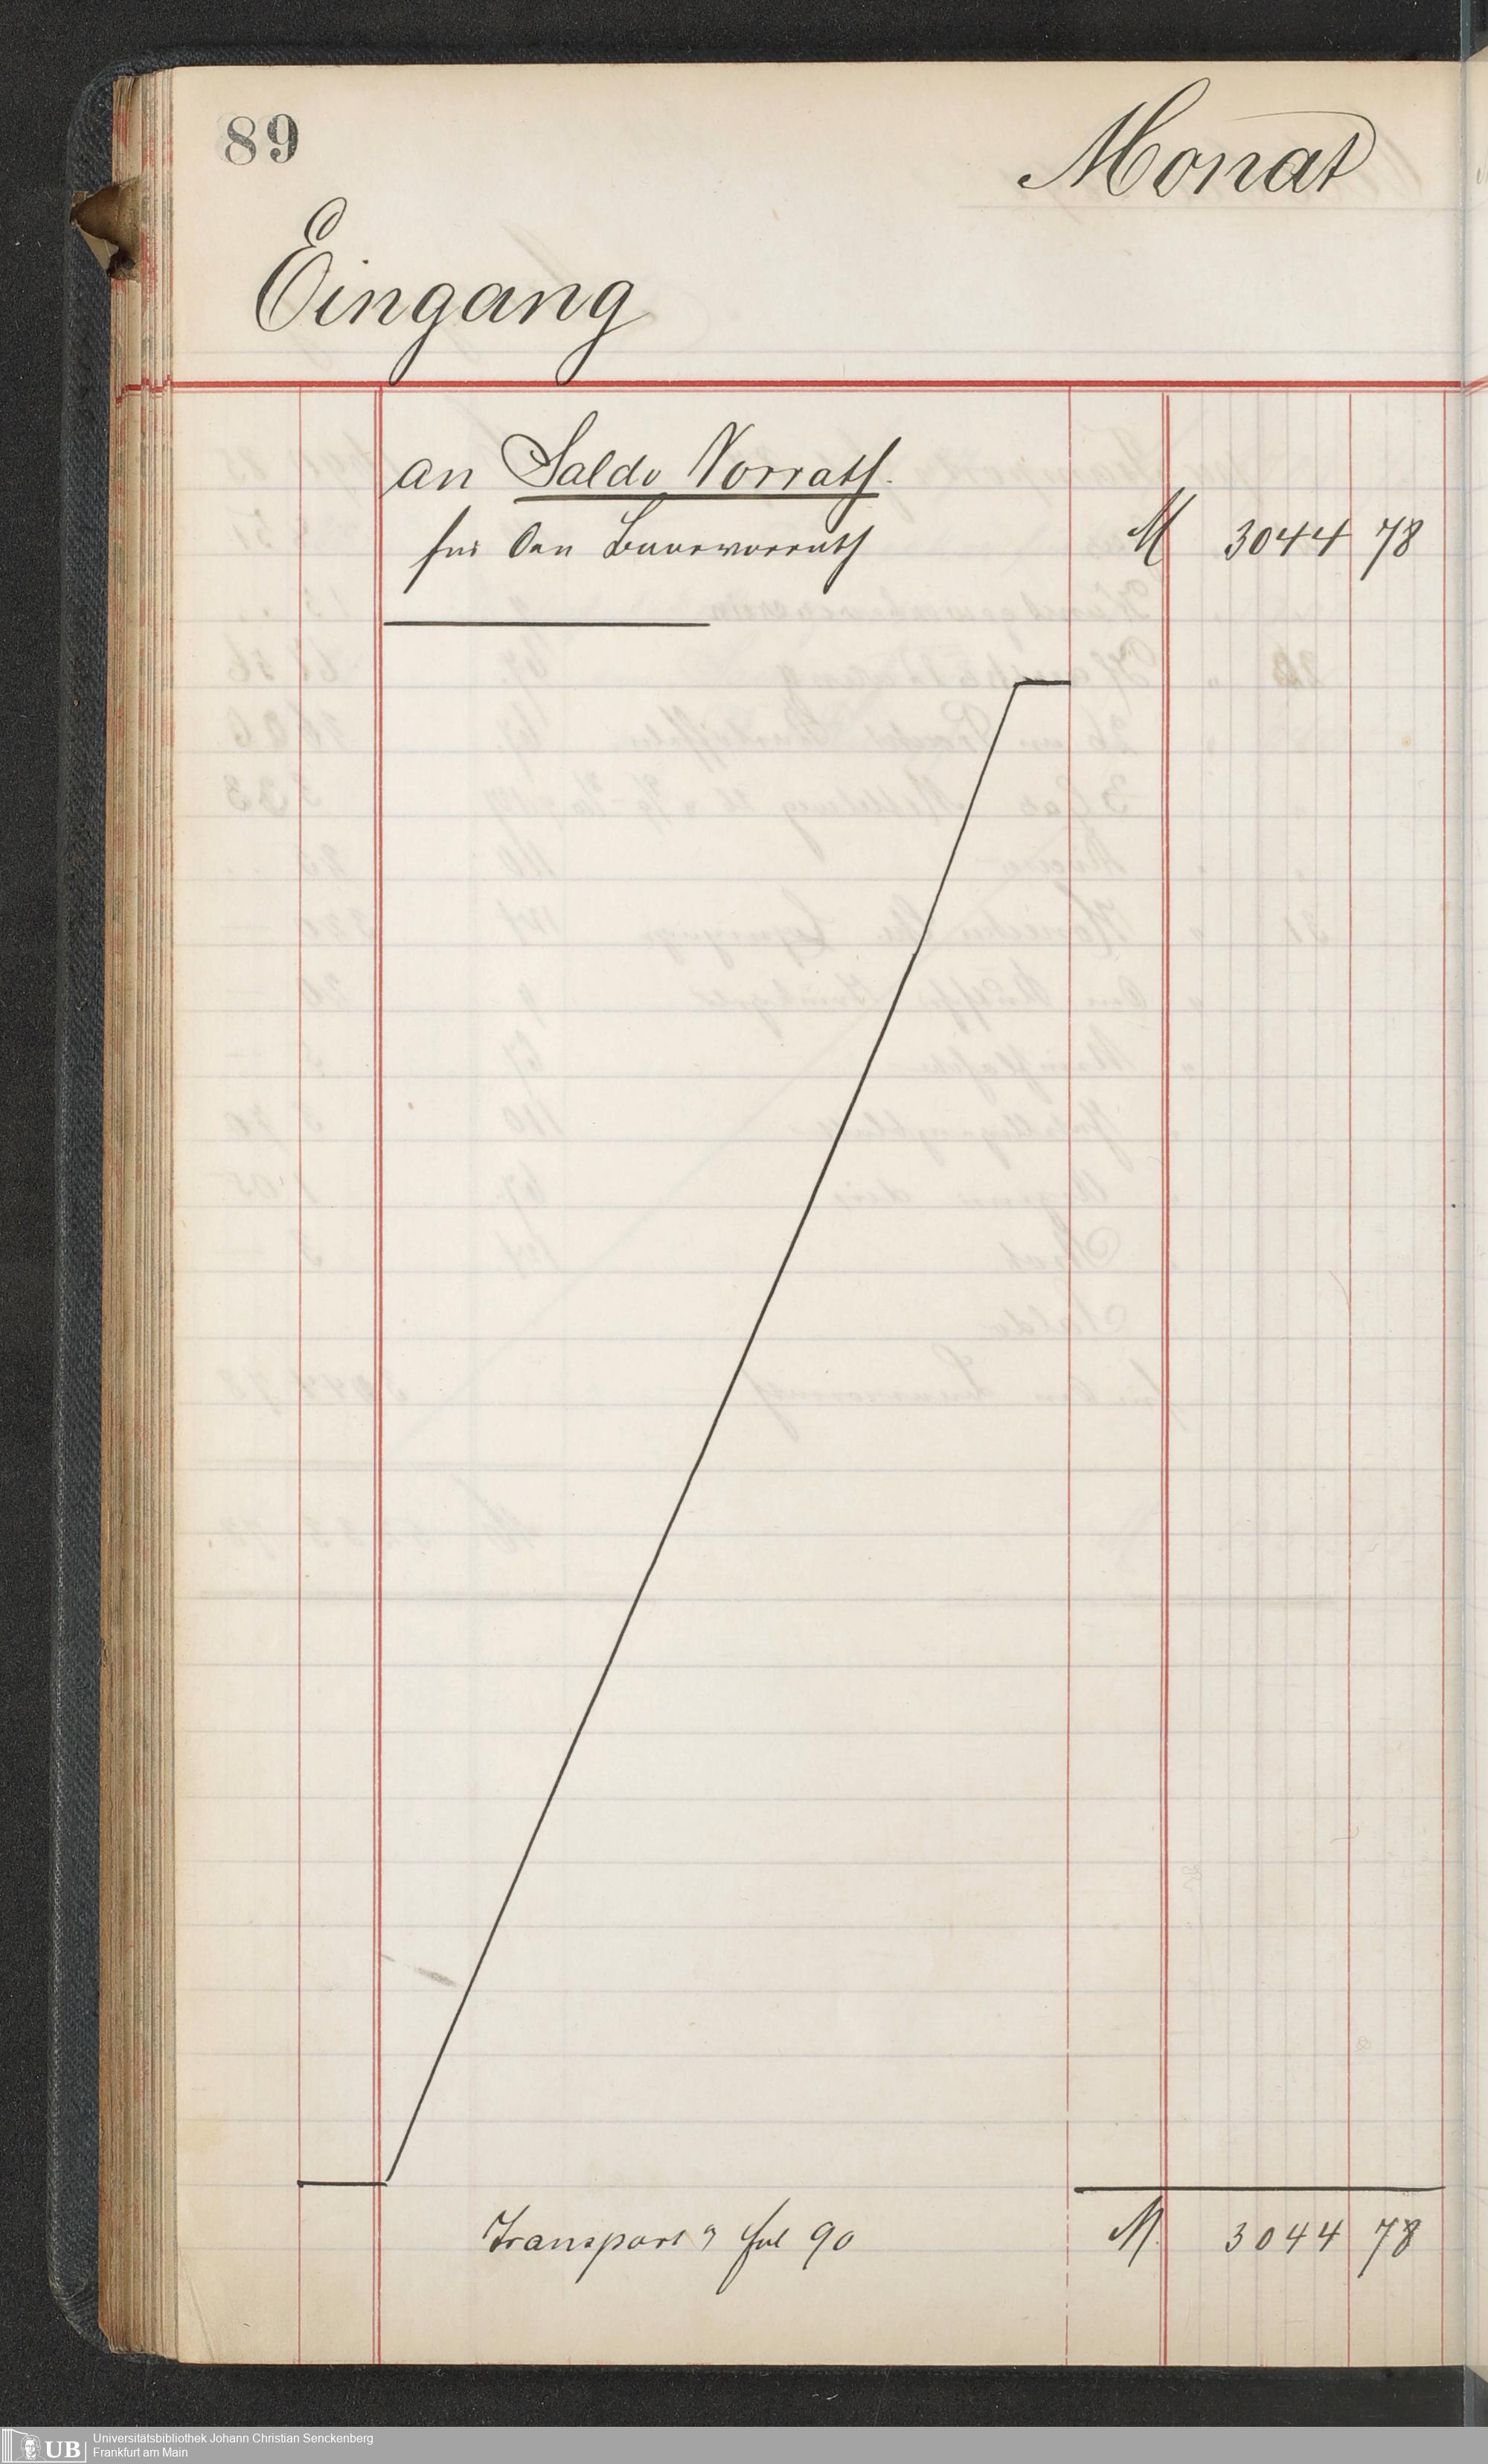 89
Monat
Eingang
an Saldo Vorrath.
für den Baarvorrath M 3044 78
Transport fol 90 M 3044 78
UB
Universitätsbibliothek Johann Christian Senckenberg
Frankfurt am Main